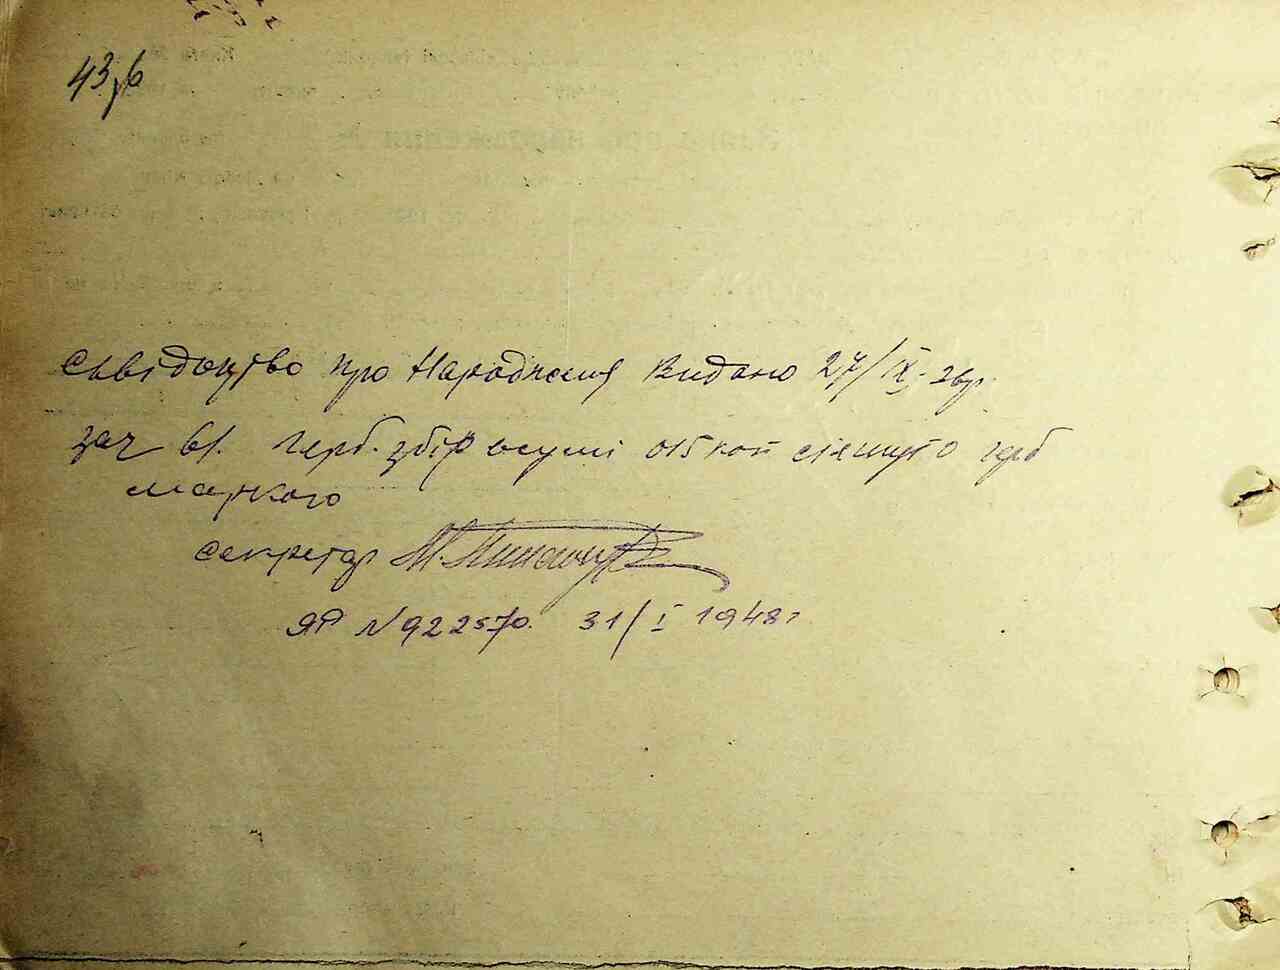 43,b
Свідоцтво про Народження Видано 27/IX-26р.
зач гр. герб. збір в сумі 015 коп стягнуто герб
маркою
секретар
ЯР N922570. 31/I 1948г